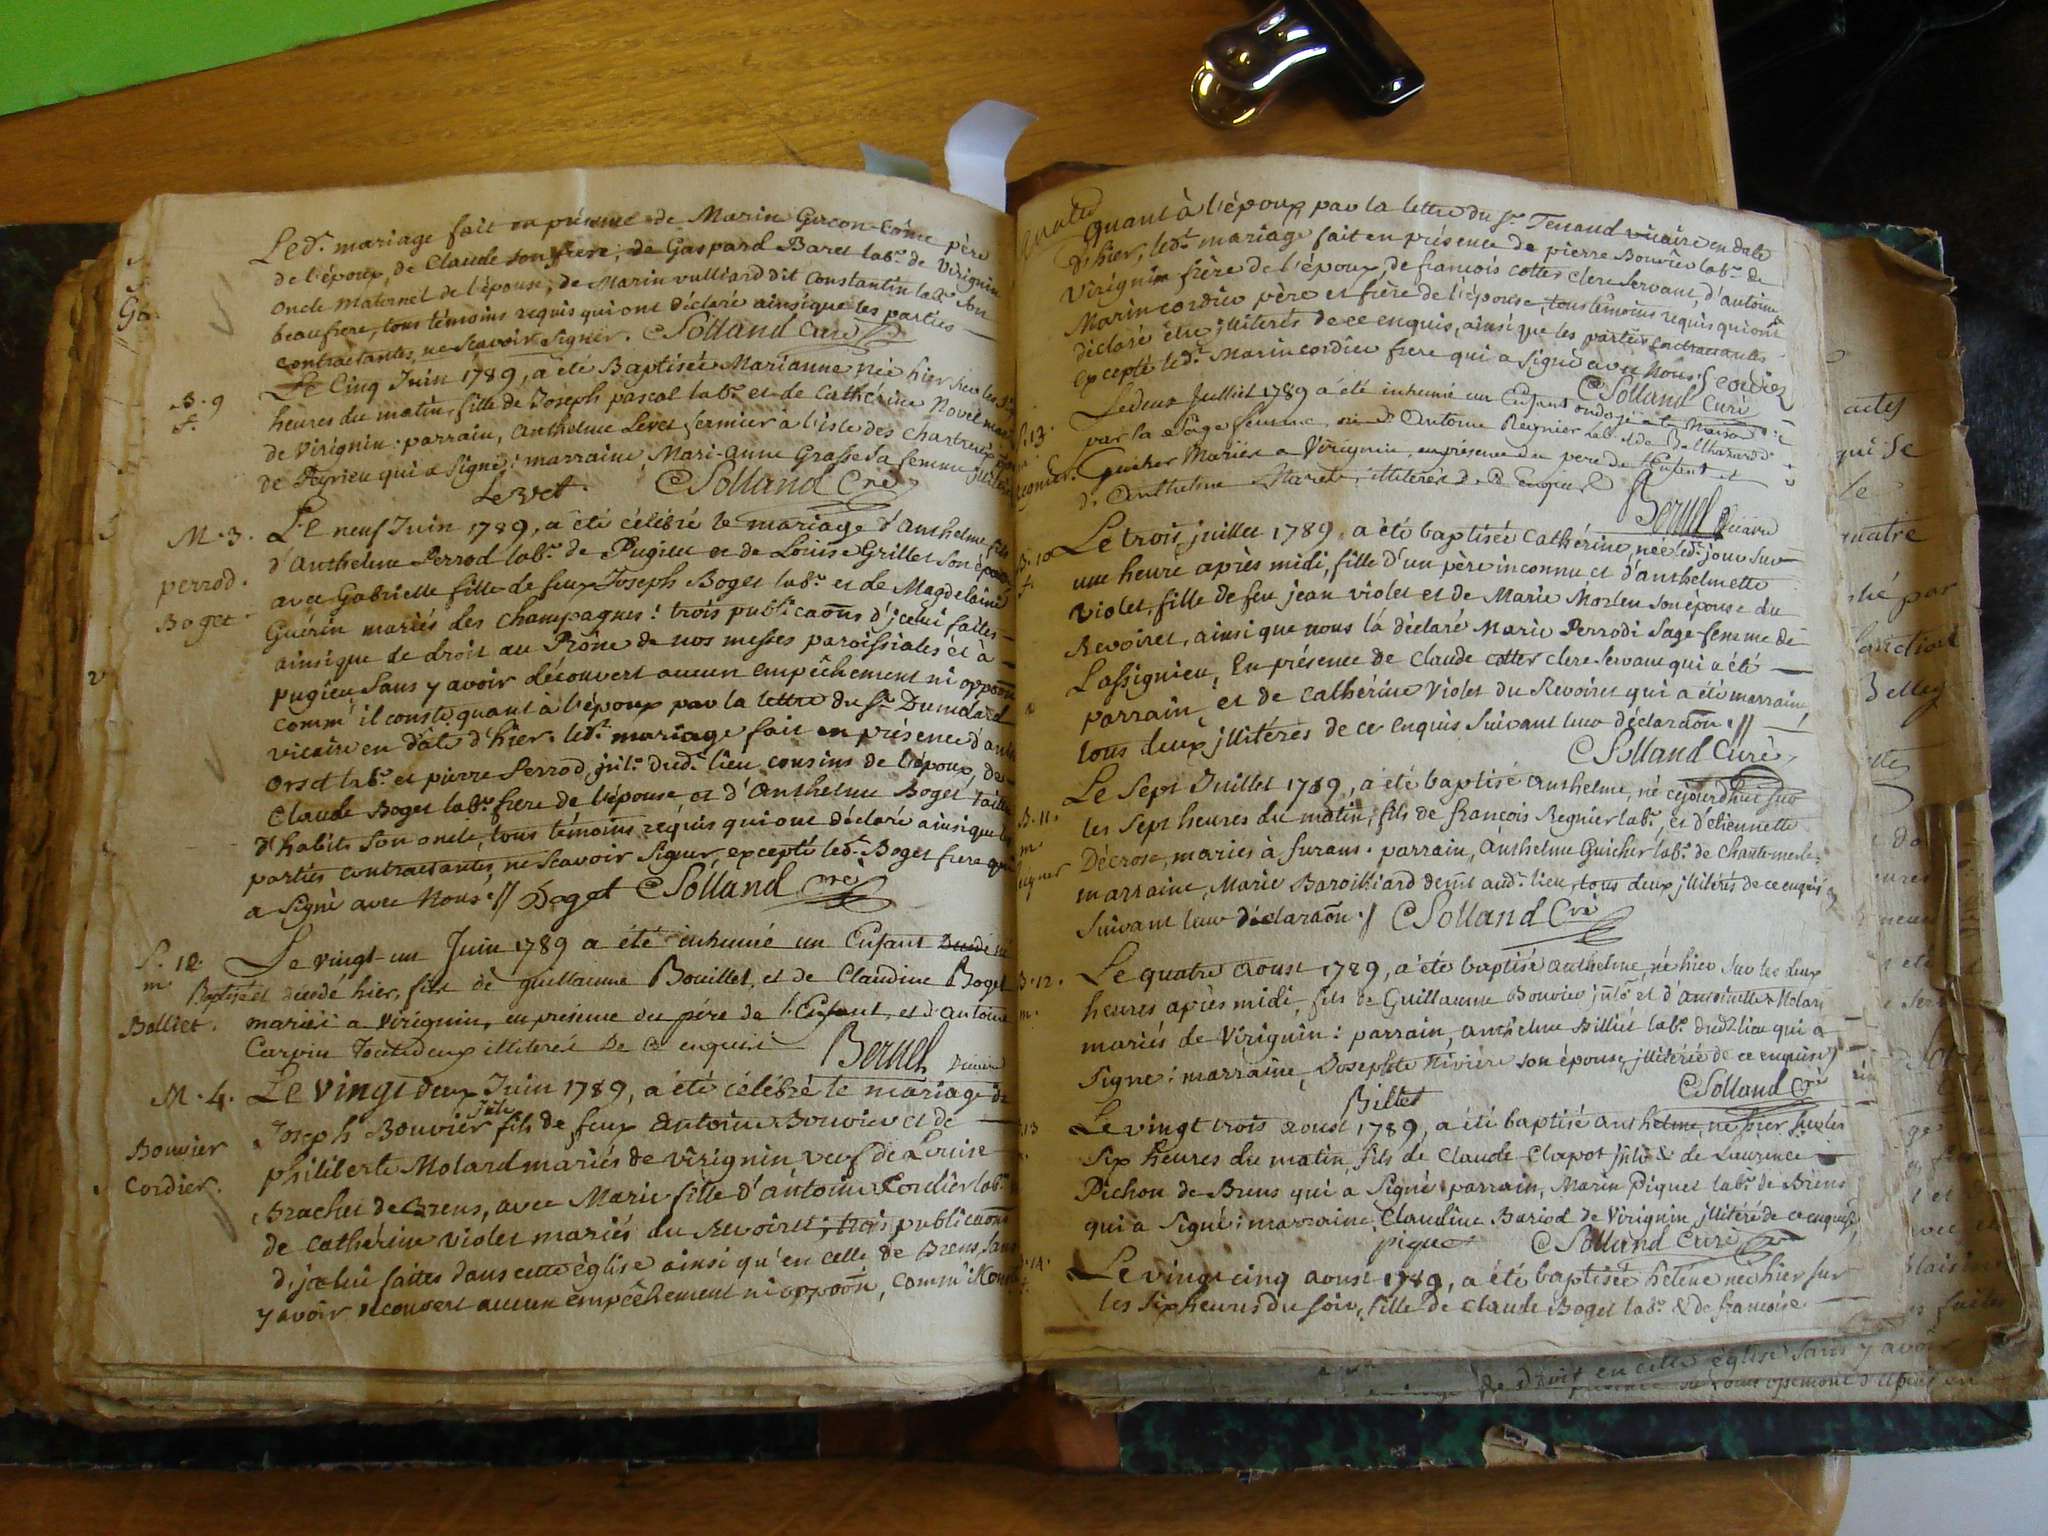 Led.t mariage fait en présence de Marin Gucon-Côme père
de l'époux, de Claude son frere, de Gaspard Baret lab.r de Virignin
oncle maternel de l'épouse, de Marin vulliard dit Constantin lab.r son
beaufrere, tous témoins requis qui ont déclaré ainsi que les parties
contractantes, ne scavoir signer. C Solland Curé
B. 9
f.
Le Cinq Juin 1789, a été Baptisée Marianne née hier sur les
heures du matin, fille de Joseph pascal lab.r et de Cathérine
de Virignin: parrain, Anthelme Levet fermier à l'isle des chartreux
de Peyrieu qui a signé: marraine, Mari-Anne Grasset sa femme
Levet. C Solland Cré
M. 3.
perrod.
Boget
Le neuf Juin 1789, a été célébré le mariage d'Anthelme fils
d'Anthelme Perrod lab.r de Pugieu et de Louise Grillet son épouse
avec Gabrielle fille de feux Joseph Boget lab.r et de Magdelaine
Guérin mariés des champagnes: trois publicaõns d'jcelui faites
ainsi que de droit au Prône de nos messes paroissiales et à
pugieu sans y avoir découvert aucun empêchement ni oppoõn
comm' il conste quant à l'époux par la lettre du S.r Dumolard
vicaire en date d'hier. led.t mariage fait en présence d'
Orset lab.r et pierre Perrod, jul.r dud.t lieu cousins de l'époux, de
Claude Boget lab.r frere de l'épouse et d'Anthelme Boget
d'habits son oncle, tous témoins requis qui ont déclaré ainsi que les
parties contractantes, ne scavoir signer, excepté led.t Boget frere qui
a signé avec Nous.// Boget C Solland Cré
S. 12
m.
Balliet.
Le vingt-un Juin 1789 a été inhumé un Enfant né
Baptisé et décédé hier, fils de guillaume Bouillet, et de Claudine Boget
mariés a Virignin, en présence du père de l'Enfant, et d'antoine
Carvin Toutsdeux illiterés De ce enquis Bernel vicaire
M. 4.
Bouvier
Cordier.
Le vingt deux Juin 1789, a été célébré le mariage de
Joseph Bouvier fils de feux Antoine Bouvier et de
philiberte Molard mariés de Virignin veuf de Louise
Brachet de Brens, avec Marie fille d'antoine Cordier lab.r
de cathérine violet mariés du Revoiret; trois publicaõns
d'jcelui faites dans cette église ainsi qu'en celle de Brens, sans
y avoir découvert aucun empêchement ni oppoõn, comm' il conste
quant à l'époux par la lettre du S.r Tenand vicaire en date
d'hier, led.t mariage fait en présence de pierre Bouvier lab.r de
Virignin frère de l'époux, de francois cottet clerc servant, d'antoine
Marin cordier père et frère de l'épouse, tous témoins requis qui ont
déclaré être jllitérés de ce enquis, ainsi que les parties contractantes
excepté led.t Marin cordier frere qui a signé avec Nous. J Cordier
C Solland Curé
S. 13.
Regnier.
Ledeux Juillet 1789 a été inhumé un Enfant ondoyé a la Maison
par la sage femme, né d'Antoine Reynier lab.r et de Balthazarde
Guicher Mariés a Virignin, en présence du pere de l'Enfant et
d'Anthelme Maret, illiterés De ce Enquis Bernel vicaire
B. 10
f.
Le trois juillet 1789, a été baptisée Cathérine, née led.t jour sur
une heure après midi, fille d'un père inconnu et d'anthelmette
Violet, fille de feu jean violet et de Marie Morten son épouse du
Revoiret, ainsi que nous l'a déclaré Marie Perrodi sage-femme de
Lassignieu, En présence de Claude cotter clerc servant qui a été
parrain, et de cathérine Violet du Revoiret qui a été marraine,
tous deux jllitérés de ce enquis suivant leur déclaraõn.//
C Solland Curé
B. 11.
m.
Le Sept Juillet 1789, a été baptisé anthelme, né cejourd'hui sur
les sept heures du matin, fils de francois Regnier lab.r, et d'etiennette
Décrose, mariés à furans. parrain, Anthelme Guicher lab.r de Chantemerle;
marraine, Marie Baroilliard demt aud.t lieu, tous deux jllitérés de ce enquis
suivant leur déclaraõn.// C Solland Cré
B. 12.
m.
Le quatre aoust 1789, a été baptisé anthelme, né hier sur les deux
heures après midi, fils de Guillaume Bouvier jnlr et d'antoinette Molard
mariés de Virignin: parrain, anthelme Billiet lab.r dud.t lieu qui a
signé: marraine, Josephte Rivière son épouse, jllitérée de ce enquise
Billet C Solland Cré
13
Le vingt trois aoust 1789, a été baptisé anthelme, né hier sur les
six heures du matin, fils de Claude Clapot & de Laurence
Pichon de Brens qui a signé. parrain, Marin Piquet lab.r de Brens
qui a signé: marraine, Claudine Bariod de Virignin jllitérée de ce enquise,
piquet C Solland Curé
14
f.
Le vingt cinq aoust 1789, a été baptisée hélène née hier sur
les six heures du soir, fille de Claude Boget lab.r & de francoise
actes
qui se
le
quatre
par
Belley
et
faites
de droit en cette église sans y avoir